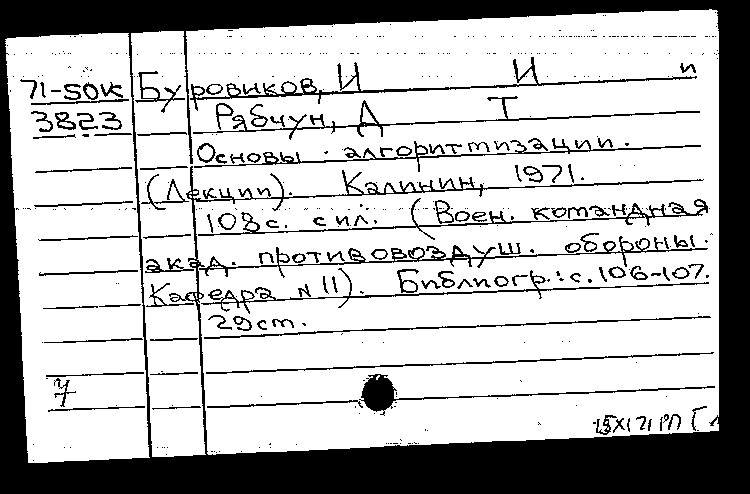 71-50К Буровиков, И И и
3823 Рябчун, Д Т
Основы алгоритмизации.
(Лекции). Калинин, 1971.
108с. с ил. (Воен. командная
акад. противовоздуш. обороны.
Кафедра №11). Библиогр.: с. 106-107.
29ст.